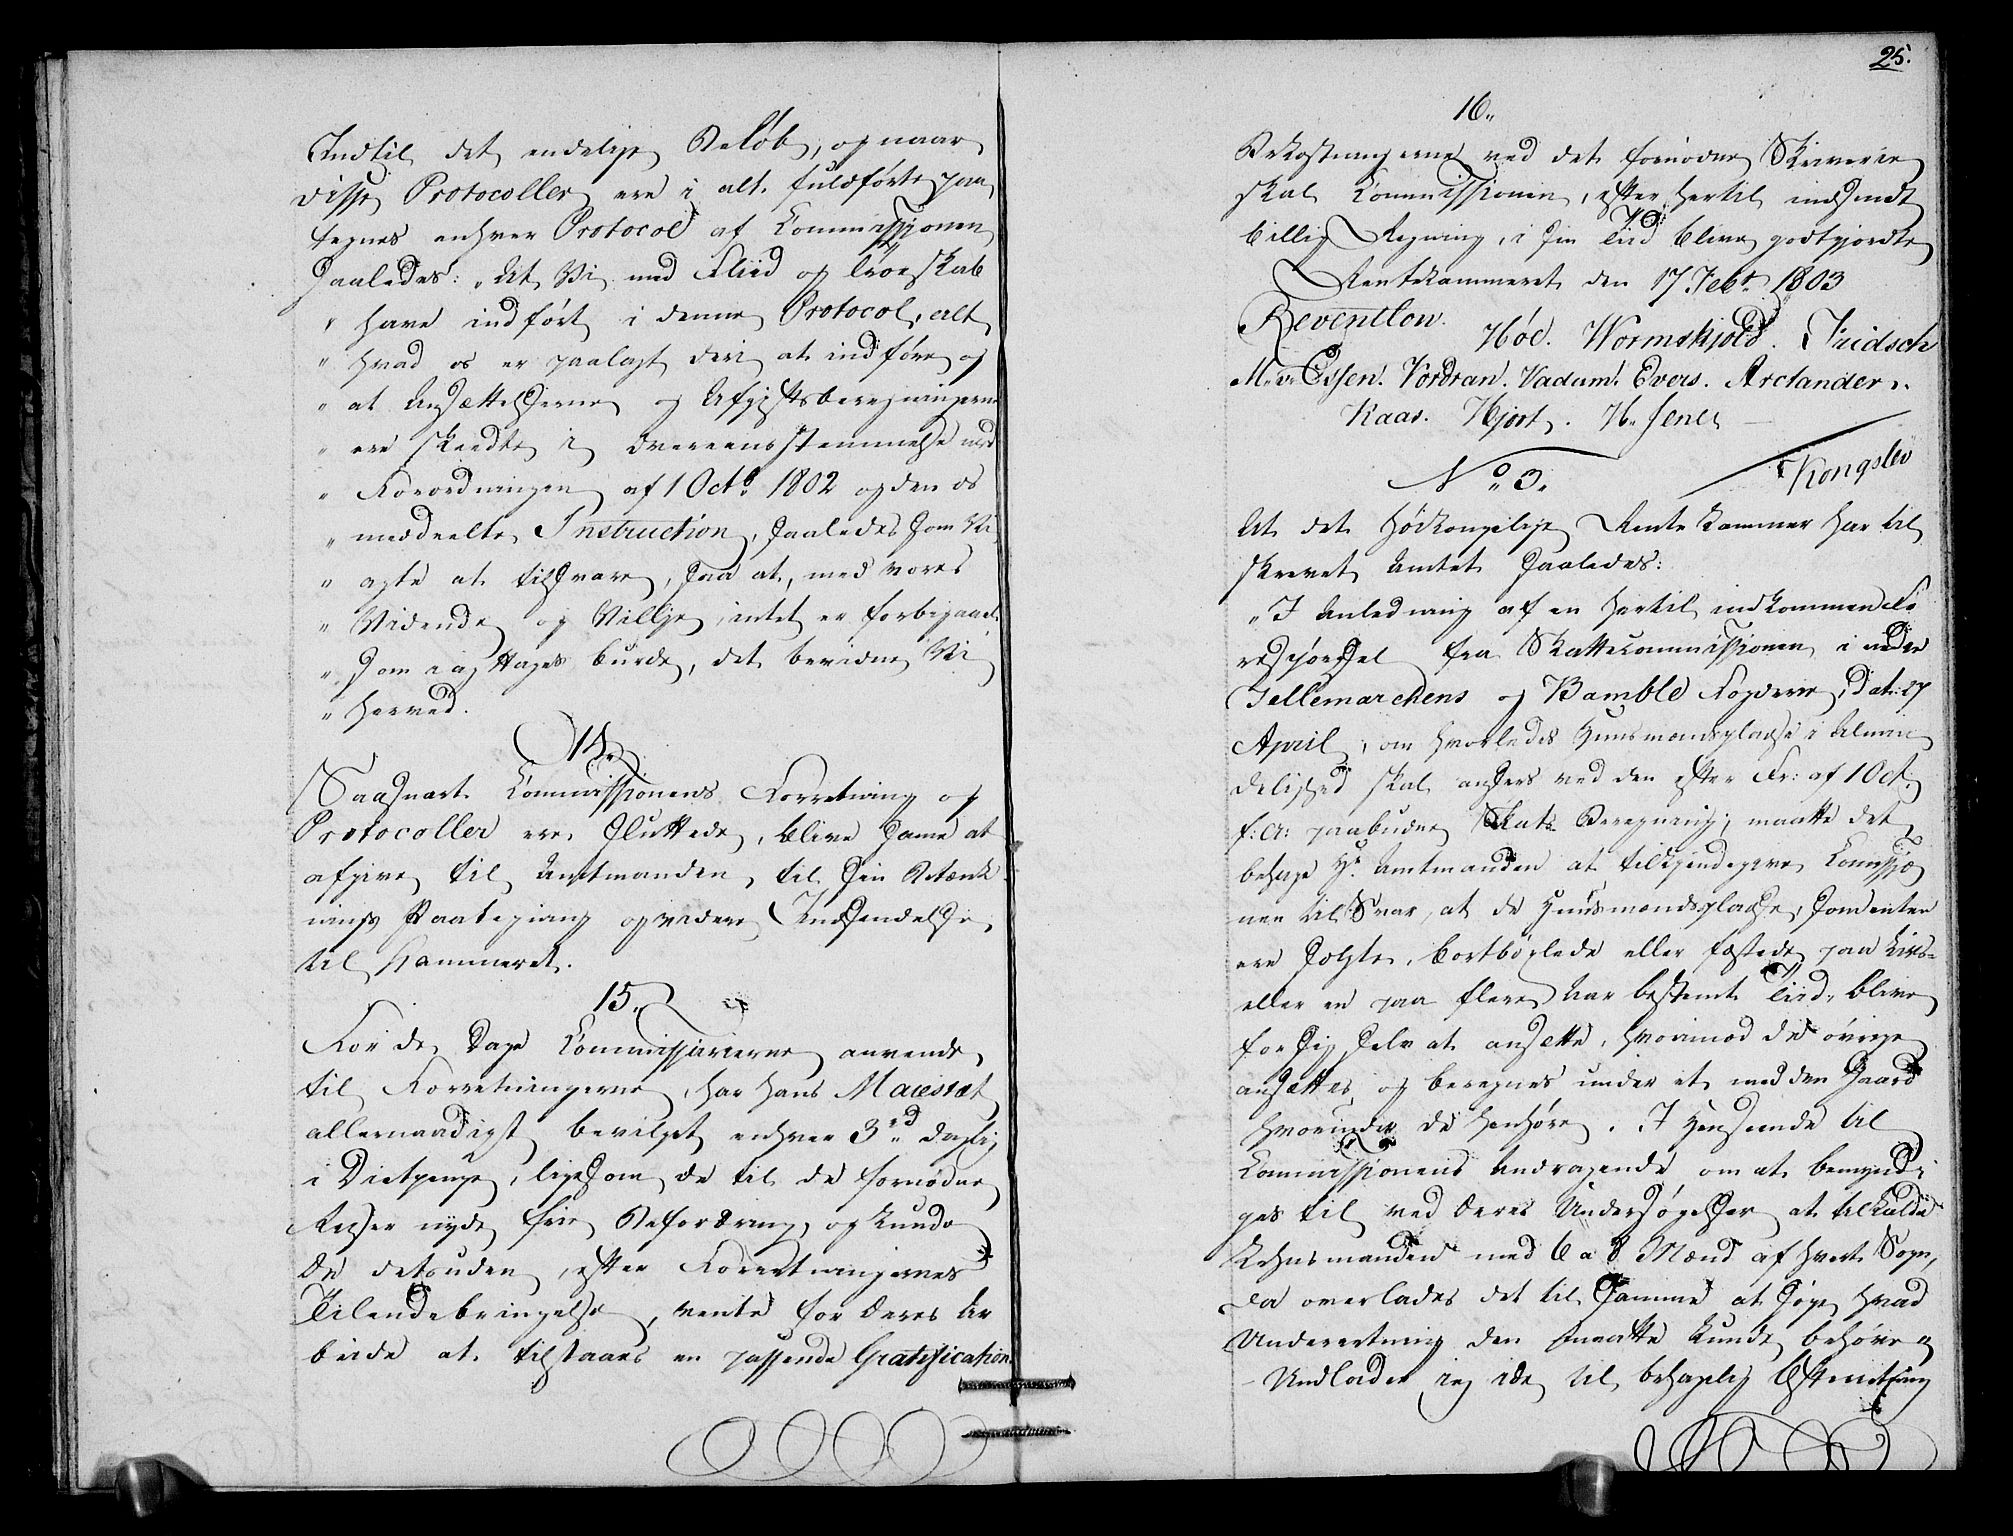 Indtil det endelige Beløb, og naar
disse Protocoller ere i alt fuldførte paa
tegnes enhver Protocol af Commissionen
saaledes: „At Vi med Fliid og Troeskab
„ have indført i denne Protocol, alt
„ hvad os er paalagt deri at indføre og
„ at Ansættelserne og Afgiftsberegningerne
„ ere skeedte i Overeensstemmelse med
„ Forordningen af 1 Octbr 1802 og den os
„ meddeelte Instruction, saaledes som Vi
„ agte at tilsvare, saa at, med vores
„ Vidende og Villje, intet er forbigaaet
„ som iagttages burde, det bevidne Vi
„ herved.
14.
Saasnart Commissionens Forretning og
Protocoller ere sluttede, blive samme at
afgive til Amtmanden, til sin Betænk
nings Paategning og videre Indsendelse
til Kammeret.
15.
For de Dage Commissairerne anvende
til Forretningerne, har Hans Maiestæt
allernaadigst bevilget enhver 3rd daglig
i Dietpenge, ligesom de til de fornødne
Reiser nyde frie Befordring, og kunde
de desuden, efter Forretningernes
Tilendebringelse, vente for deres Ar
beide at tilstaaes en passende Gratification.
25.
16.
Bekostningerne ved det fornødne Skriverie
skal Commissionen, efter hertil indsendt
billig Regning, i sin Tiid blive godtgjordte
Rentekammeret den 17 Febr. 1803
Reventlow.
Höe. Wormskjold. Fridsch
M. v. Essen. Vordran. Vadum. Evers. Arctander.
Kaas. Hjort. H. Jensen
No 3.
Kongslev
At det Høikongelige Rente Kammer har til
skrevet Amtet saaledes:
„I Anledning af en hertil indkommen Fo
respørgsel fra Skattecommissionen i nedre
Tellemarchens og Bamble Fogderie, dat: 27
April, om hvorledes Huusmandspladse i Almin
delighed skal ansees ved den efter Fr: af 1 Oct.
f: A: paabudne Skats Beregning, maatte det
behage Hr. Amtmanden at tilkjendegive Commissio
nen til Svar, at de Huusmandspladse, som enten
ere solgte, bortbøxlede eller fæstede paa Livs-
eller en paa flere Aar bestemt Tiid, blive
for sig selv at ansætte, hvorimod de øvrige
ansættes og beregnes under et med den Gaard
hvorunder de henhøre. I Henseende til
Commissionens Andragende, om at bemyndi
ges til ved deres Undersøgelser at tilkalde
Lehnsmanden med 6 a 8 Mænd af hvert Sogn,
da overlades det til samme at søge hvad
Underretning den maatte kunde behøve
Undlader ieg icke til behagelig Efterretning